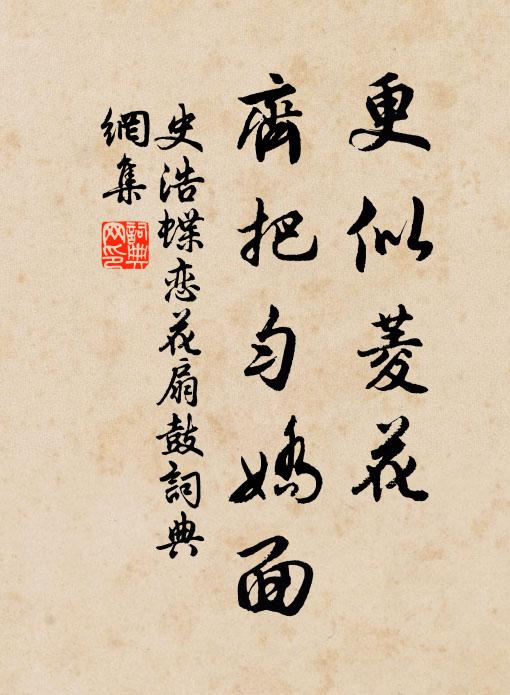 更似菱花
齊把匀嬌面
史浩蝶恋花扇鼓詞典
網集
詞典网印